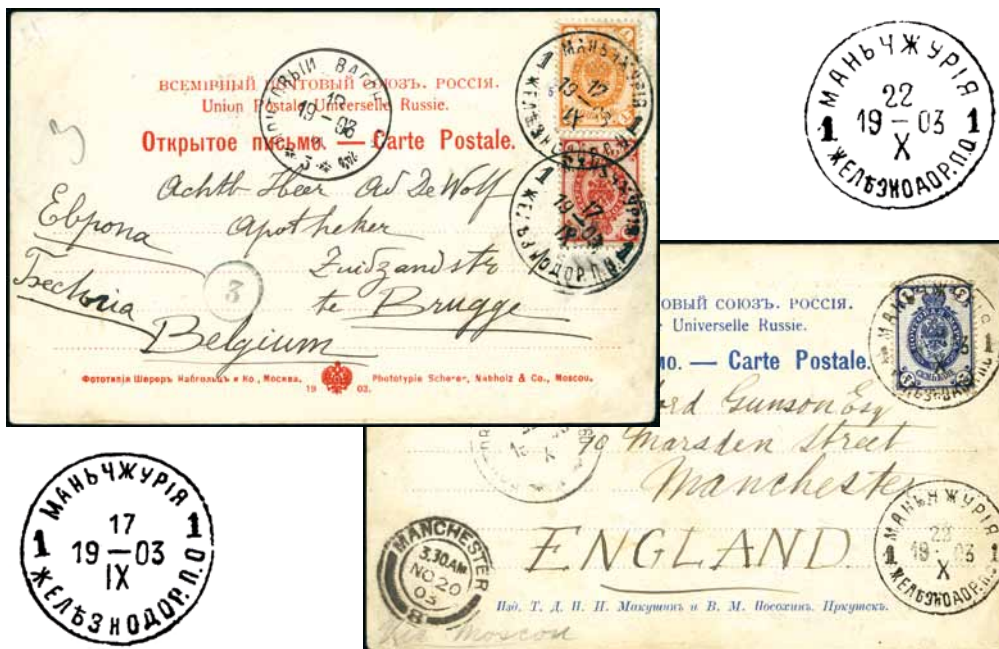 ВСЕМІРНЫЙ ПОЧТОВЫЙ СОЮЗЪ. РОССІЯ.
Union Postale Universelle Russie.
Открытое письмо. — Carte Postale.
ПОЧТОВЫЙ ВАГОНЪ
19 — 03
3
МАНЬЧЖУРІЯ
1 1
17
19 — 03
IX
ЖЕЛѢЗНОДОР. П. О.
МАНЬЧЖУРІЯ
1 1
17
19 — 03
IX
ЖЕЛѢЗНОДОР. П. О.
3
Achtb Heer Ad De Wolf
Apotheker
Zuidzandstr
te Brugge
Belgium
Европа
3
Фототипія Шереръ Набгольцъ и Ко., Москва. 1903. Phototypie Scherer, Nabholz & Co., Moscou.
МАНЬЧЖУРІЯ
22
1 19 — 03 1
X
ЖЕЛѢЗНОДОР. П. О.
ОВЫЙ СОЮЗЪ. РОССІЯ.
Universelle Russie.
мо. — Carte Postale.
ord Gunson Esq
90 Marsden Street
Manchester
ENGLAND.
МАНЬЧЖУРІЯ
22
19 — 03
X
ЖЕЛѢЗНОДОР. П. О.
MANCHESTER
3.30 AM
NO 20
03
8
Изд. Т. Д. П. И. Макушинъ и В. М. Посохинъ. Иркутскъ.
Via Moscou
МАНЬЧЖУРІЯ
17
1 19 — 03 1
IX
ЖЕЛѢЗНОДОР. П. О.